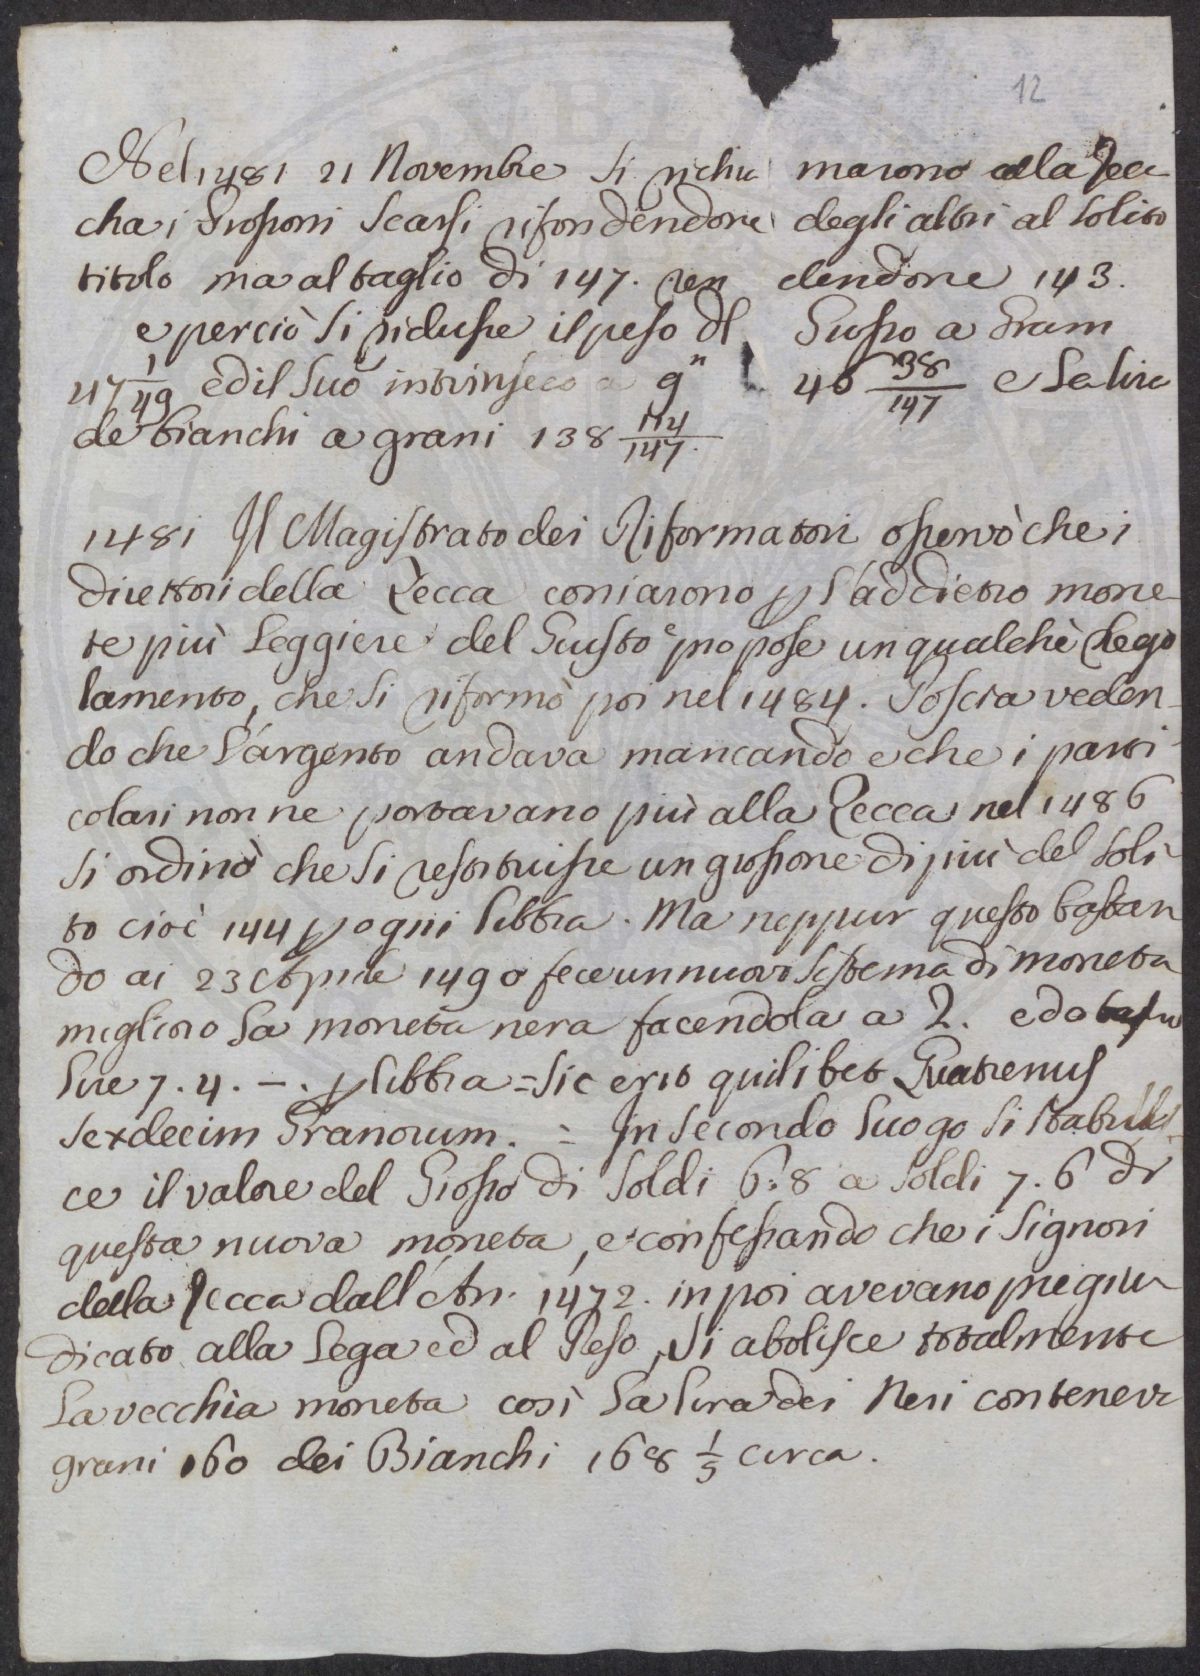 12
Nel 1481 21 Novembre si richia marono alla Zec
cha i Grossoni scarsi rifondendone degli altri al solito
titolo ma al taglio di 147. ren dendone 143.
e perciò si ridusse il peso dl Grosso a Gram
47 1/49 ed il suo intrinseco a gn 46 38/147 e la lira
de bianchi a grani 138 114/147.
1481 Il Magistrato dei Riformatori osservò che i
direttori della Zecca coniarono p l'addietro mone-
te più leggiere del Giusto e propose un qualche rego
lamento, che si riformò poi nel 1484. Poscia veden-
do che l'argento andava mancando e che i parti-
colari non ne portavano più alla Zecca nel 1486
si ordinò che si restituisse un grossone di più del soli-
to cioè 144 p ogni libbra. Ma neppur questo bastan
do ai 23 Aprile 1490 fece un nuovo sistema di moneta
miglioro la moneta nera facendola a 2. ed a
lire 7. 4. -. p libbra = sic erit quilibet Quatrenus
sexdecim Granorum. = In secondo luogo si stabilis-
ce il valore del Grosso di soldi 6:8 a soldi 7. 6 di
questa nuova moneta, e confessando che i Signori
della Zecca dall'An. 1472. in poi avevano pregiu
dicato alla lega ed al Peso, si abolisce totalmente
la vecchia moneta così la lira dei Neri conteneva
grani 160 dei Bianchi 168 1/5 circa.